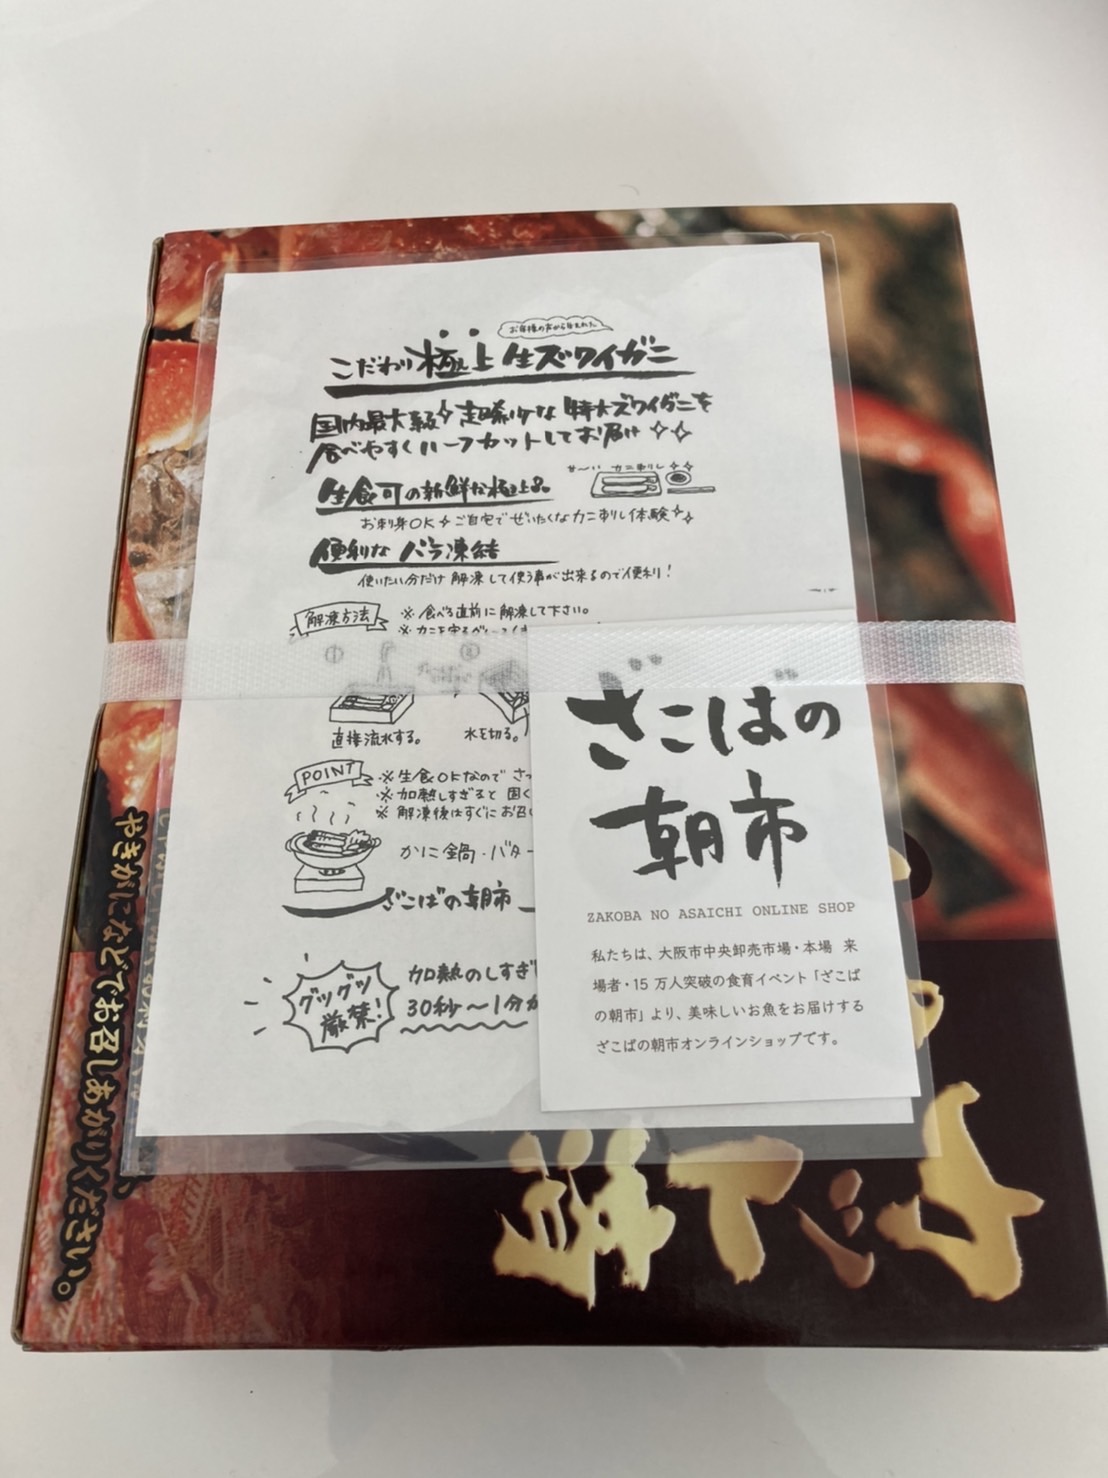 お客様の声から生まれた
こだわり極上生ズワイガニ
国内最大級 超豪快な 特大ズワイガニを
食べやすくハーフカットしてお届け
生食可の新鮮な極上品。
カニ刺し
お刺身OK ご自宅でぜいたくなカニ刺し体験
便利なバラ凍結
使いたい分だけ解凍して使う事が出来るので便利!
解凍方法
※食べる直前に解凍して下さい。
① ②
直接流水する。 水を切る。
POINT
※生食OKなので
※加熱しすぎると固く
※解凍後はすぐにお召し
かに鍋・バター
ざこばの朝市
グツグツ厳禁!
加熱のしすぎ
30秒〜1分が
ざこばの
朝市
ZAKOBA NO ASAICHI ONLINE SHOP
私たちは、大阪市中央卸売市場・本場 来
場者・15万人突破の食育イベント「ざこば
の朝市」より、美味しいお魚をお届けする
ざこばの朝市オンラインショップです。
やきがになどでお召しあがりください。